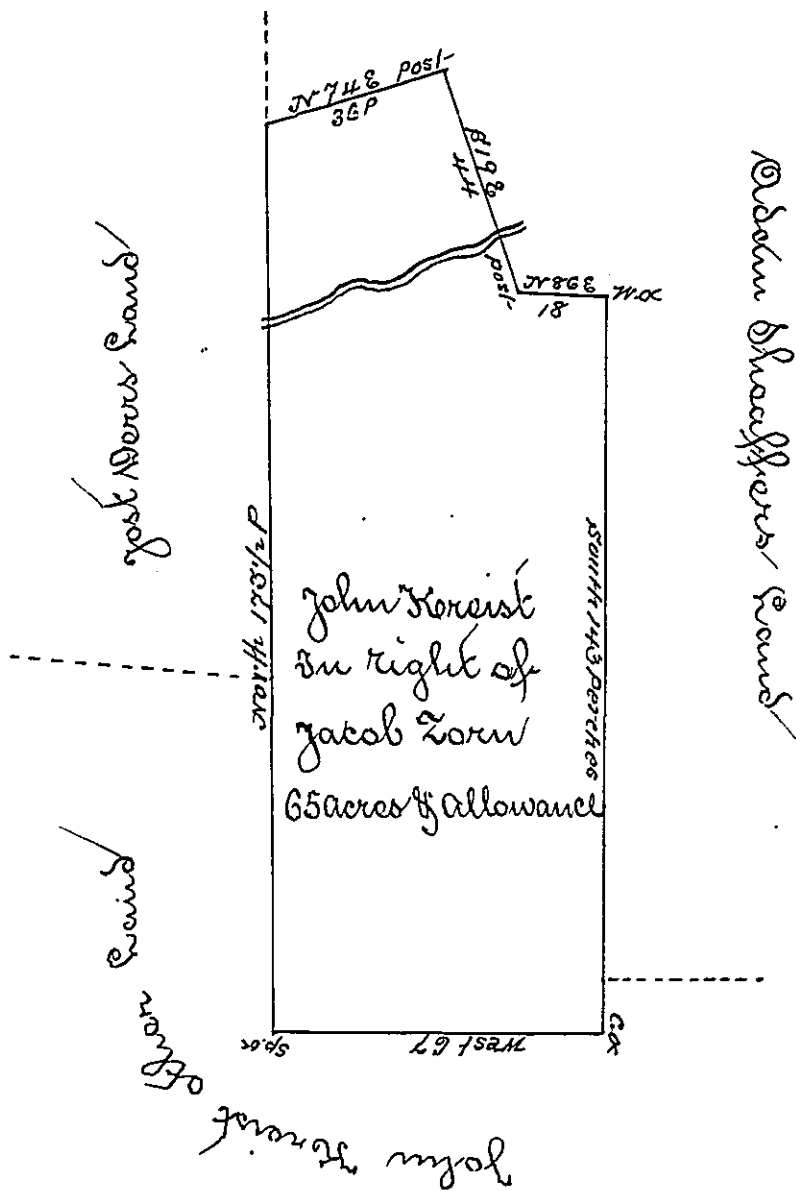 N 74 E post
36 P
S 19 E
44
post
N 89 E
18
W.O.
Jost Dorrs Land
Adam Shaaffers Land
North 175 1/2 P
South 143 Perches
John Kereist
In right of
Jacob Zorn
65 acres & Allowance
Sp. O.
West 67
John Kreist other Land